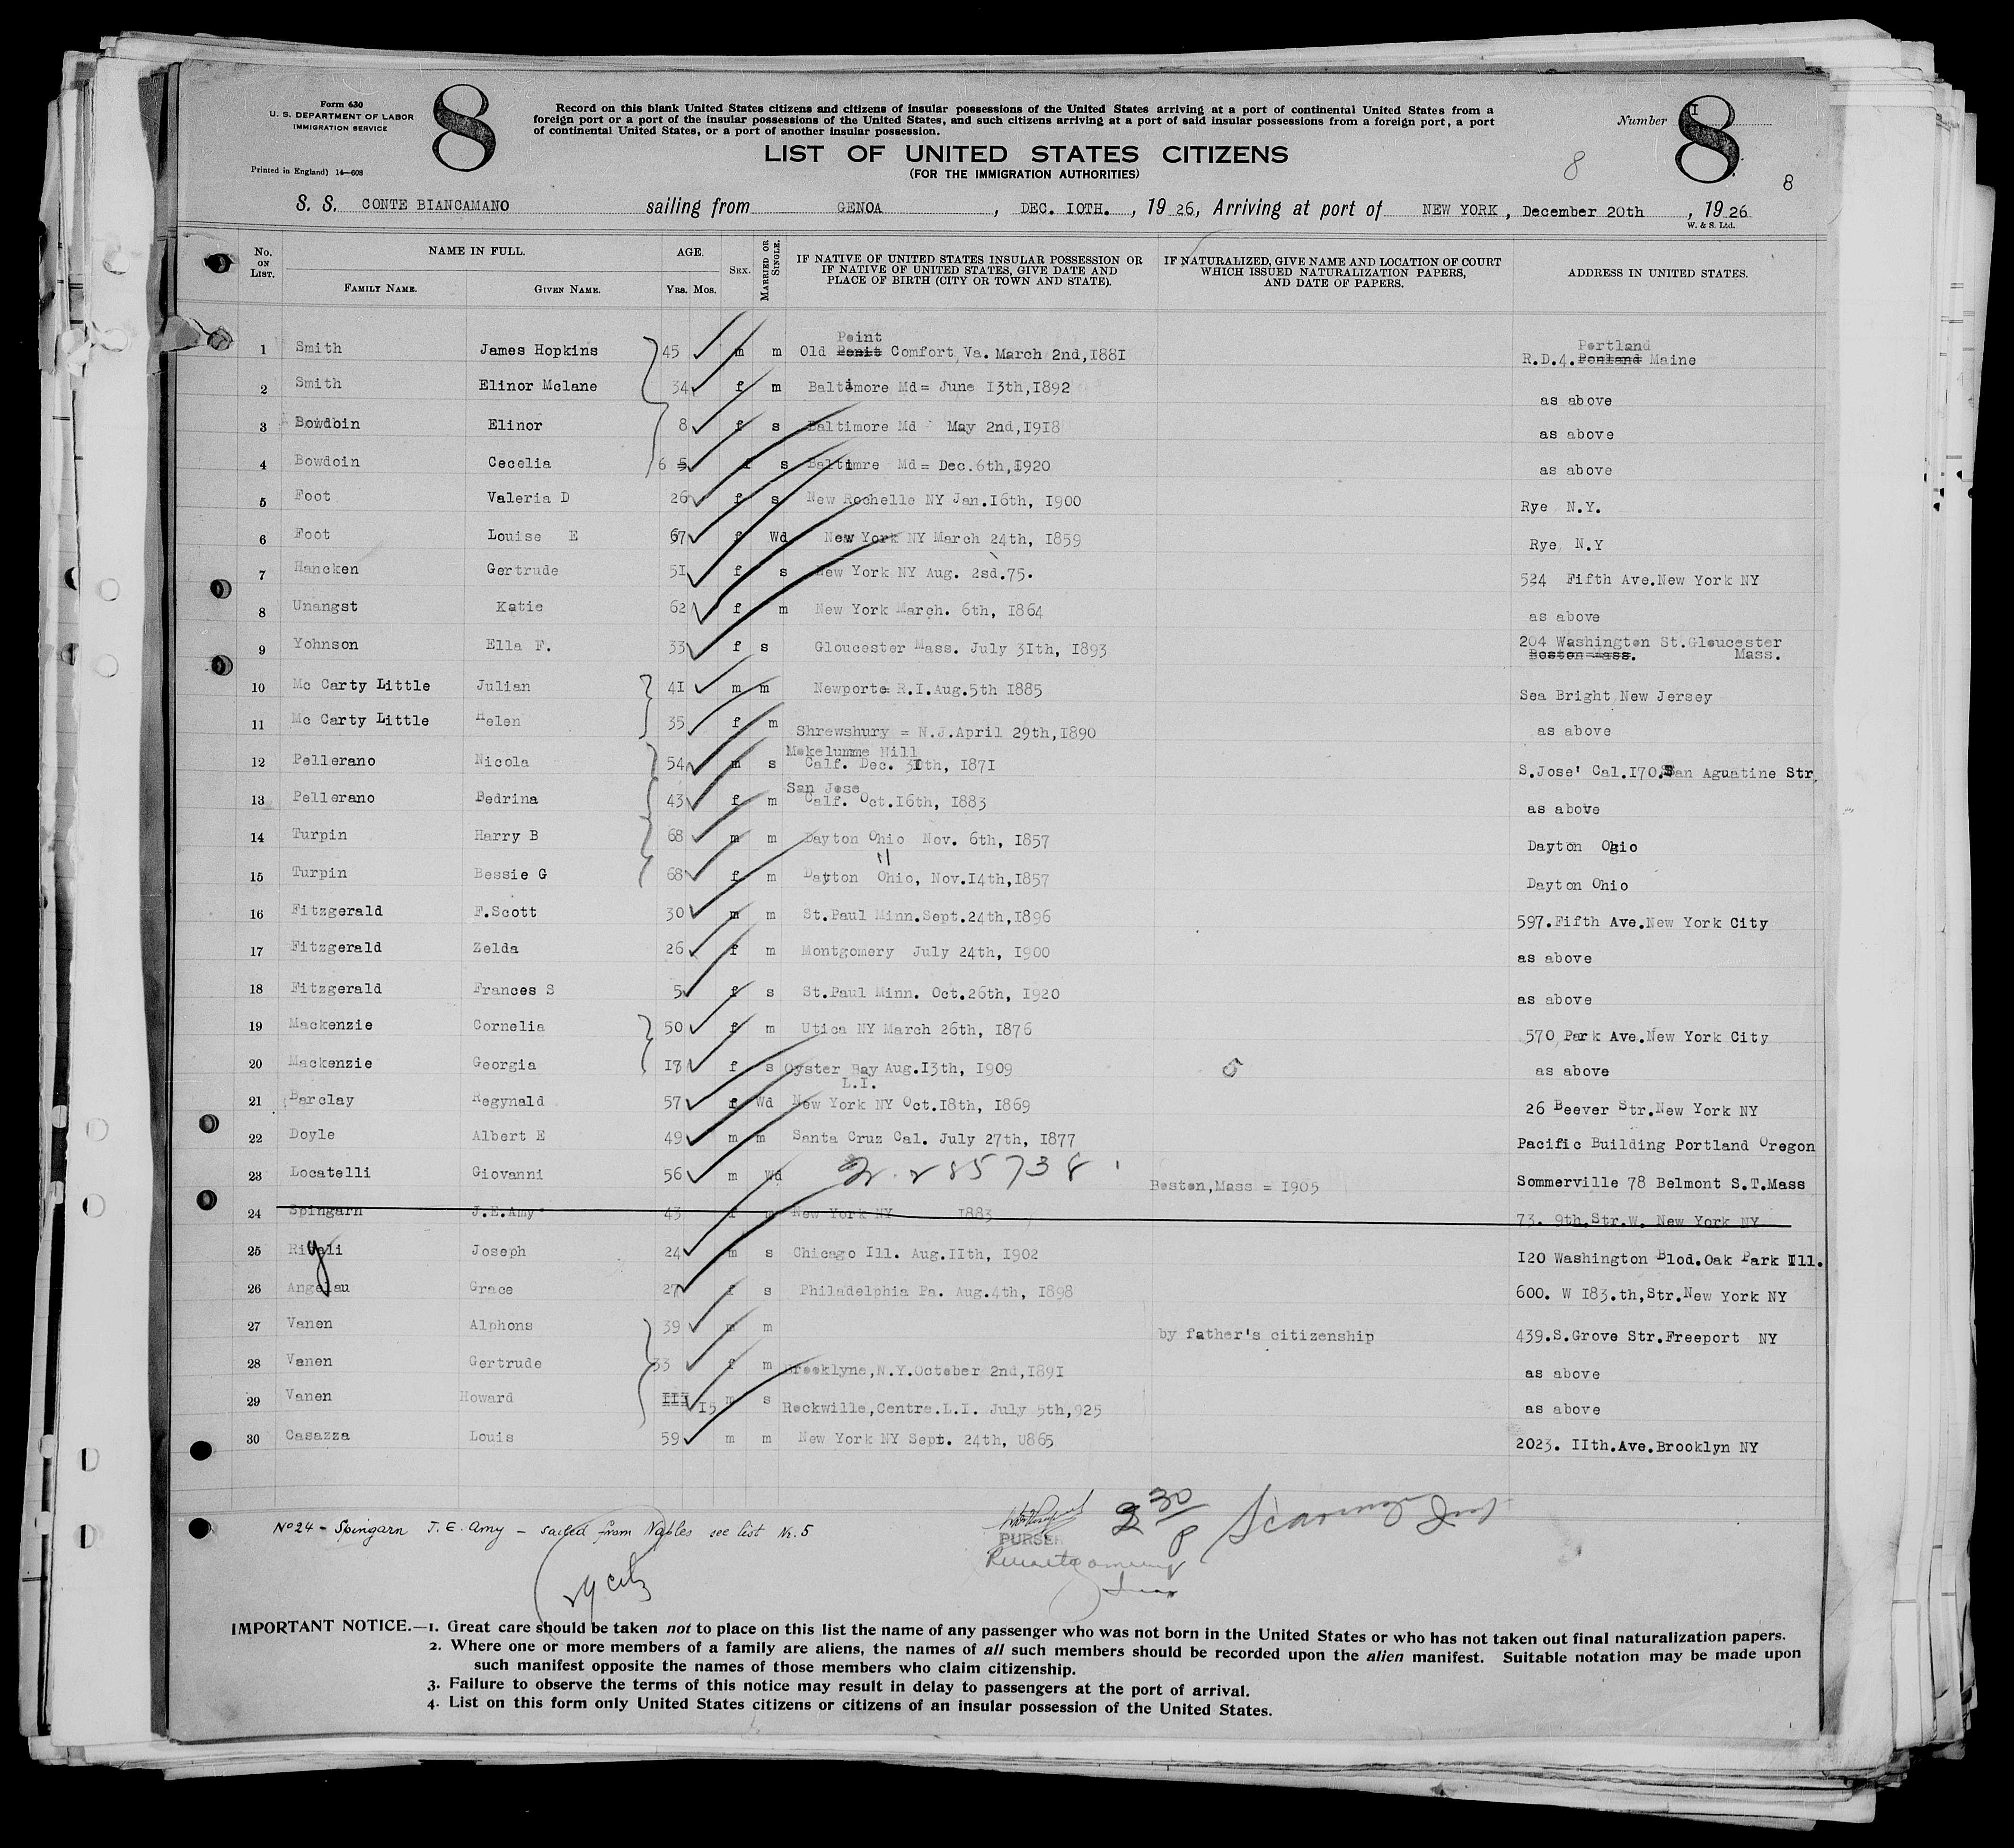 Form 630
U. S. DEPARTMENT OF LABOR
IMMIGRATION SERVICE
Printed in England) 14—608
8
Record on this blank United States citizens and citizens of insular possessions of the United States arriving at a port of continental United States from a
foreign port or a port of the insular possessions of the United States, and such citizens arriving at a port of said insular possessions from a foreign port, a port
of continental United States, or a port of another insular possession.
LIST OF UNITED STATES CITIZENS
(FOR THE IMMIGRATION AUTHORITIES)
Number I
8
8
8
S. S. CONTE BIANCAMANO sailing from GENOA , DEC. IOTH. , 19 26, Arriving at port of NEW YORK , December 20th , 19 26
W. & S. Ltd.
No. ON LIST. NAME IN FULL. FAMILY NAME. GIVEN NAME. AGE. YRS. MOS. SEX. MARRIED OR SINGLE. IF NATIVE OF UNITED STATES INSULAR POSSESSION OR IF NATIVE OF UNITED STATES, GIVE DATE AND PLACE OF BIRTH (CITY OR TOWN AND STATE). IF NATURALIZED, GIVE NAME AND LOCATION OF COURT WHICH ISSUED NATURALIZATION PAPERS, AND DATE OF PAPERS. ADDRESS IN UNITED STATES.
1 Smith James Hopkins 45 m m Old Ponit Point Comfort, Va. March 2nd, I88I R.D.4. Ponland Portland Maine
2 Smith Elinor Mclane 34 f m Baltimore Md= June I3th, I892 as above
3 Bowdoin Elinor 8 f s Baltimore Md May 2nd, I9I8 as above
4 Bowdoin Cecelia 6 5 f s Baltimre Md= Dec.6th, I920 as above
5 Foot Valeria D 26 f s New Rochelle NY Jan.I6th, I900 Rye N.Y.
6 Foot Louise E 67 f Wd New York NY March 24th, I859 Rye, N.Y
7 Hancken Gertrude 5I f s New York NY Aug. 2sd.75. 524 Fifth Ave.New York NY
8 Unangst Katie 62 f m New York March. 6th, I864 as above
9 Yohnson Ella F. 33 f s Gloucester Mass. July 3Ith, I893 204 Washington St.Gloucester Boston Mass. Mass.
10 Mc Carty Little Julian 4I m m Newporte R.I.Aug.5th I885 Sea Bright New Jersey
11 Mc Carty Little Helen 35 f m Shrewshury = N.J.April 29th, I890 as above
12 Pellerano Nicola 54 m s Mokelumme Hill Calf. Dec. 3Ith, I87I S.Jose' Cal.I70.San Aguatine Str.
13 Pellerano Bedrina 43 f m San Jose Calf. Oct.I6th, I883 as above
14 Turpin Harry B 68 m m Dayton Ohio Nov. 6th, I857 Dayton Ohio
15 Turpin Bessie G 68 f m Dayton Ohio, Nov.I4th, I857 Dayton Ohio
16 Fitzgerald F.Scott 30 m m St.Paul Minn.Sept.24th, I896 597.Fifth Ave.New York City
17 Fitzgerald Zelda 26 f m Montgomery July 24th, I900 as above
18 Fitzgerald Frances S 5 f s St.Paul Minn. Oct.26th, I920 as above
19 Mackenzie Cornelia 50 f m Utica NY March 26th, I876 570 Park Ave.New York City
20 Mackenzie Georgia I7 f s Oyster Bay Aug.I3th, I909 L.I. as above
21 Barclay Regynald 57 f Wd New York NY Oct.I8th, I869 26 Beever Str.New York NY
22 Doyle Albert E 49 m m Santa Cruz Cal. July 27th, I877 Pacific Building Portland Oregon
23 Locatelli Giovanni 56 m Wd 2.285738 Boston,Mass = I905 Sommerville 78 Belmont S.T.Mass
24 Spingarn J.E.Amy 43 f m New York NY I883 73. 9th.Str.W. New York NY
25 Rigali Joseph 24 m s Chicago Ill. Aug.IIth, I902 I20 Washington Blod.Oak Park Ill.
26 Angelau Grace 27 f s Philadelphia Pa. Aug.4th, I898 600. W I83.th,Str.New York NY
27 Vanen Alphons 39 m m by father's citizenship 439.S.Grove Str.Freeport NY
28 Vanen Gertrude 33 f m Brooklyne,N.Y.October 2nd, I89I as above
29 Vanen Howard III I5 m s Rockwille,Centre.L.I. July 5th,925 as above
30 Casazza Louis 59 m m New York NY Sept. 24th, U865 2023. IIth.Ave.Brooklyn NY
No 24 - Spingarn J. E. Amy - sailed from Naples see list N. 5
PURSER
2 30 P
29 citz
IMPORTANT NOTICE.—1. Great care should be taken not to place on this list the name of any passenger who was not born in the United States or who has not taken out final naturalization papers.
2. Where one or more members of a family are aliens, the names of all such members should be recorded upon the alien manifest. Suitable notation may be made upon
such manifest opposite the names of those members who claim citizenship.
3. Failure to observe the terms of this notice may result in delay to passengers at the port of arrival.
4. List on this form only United States citizens or citizens of an insular possession of the United States.